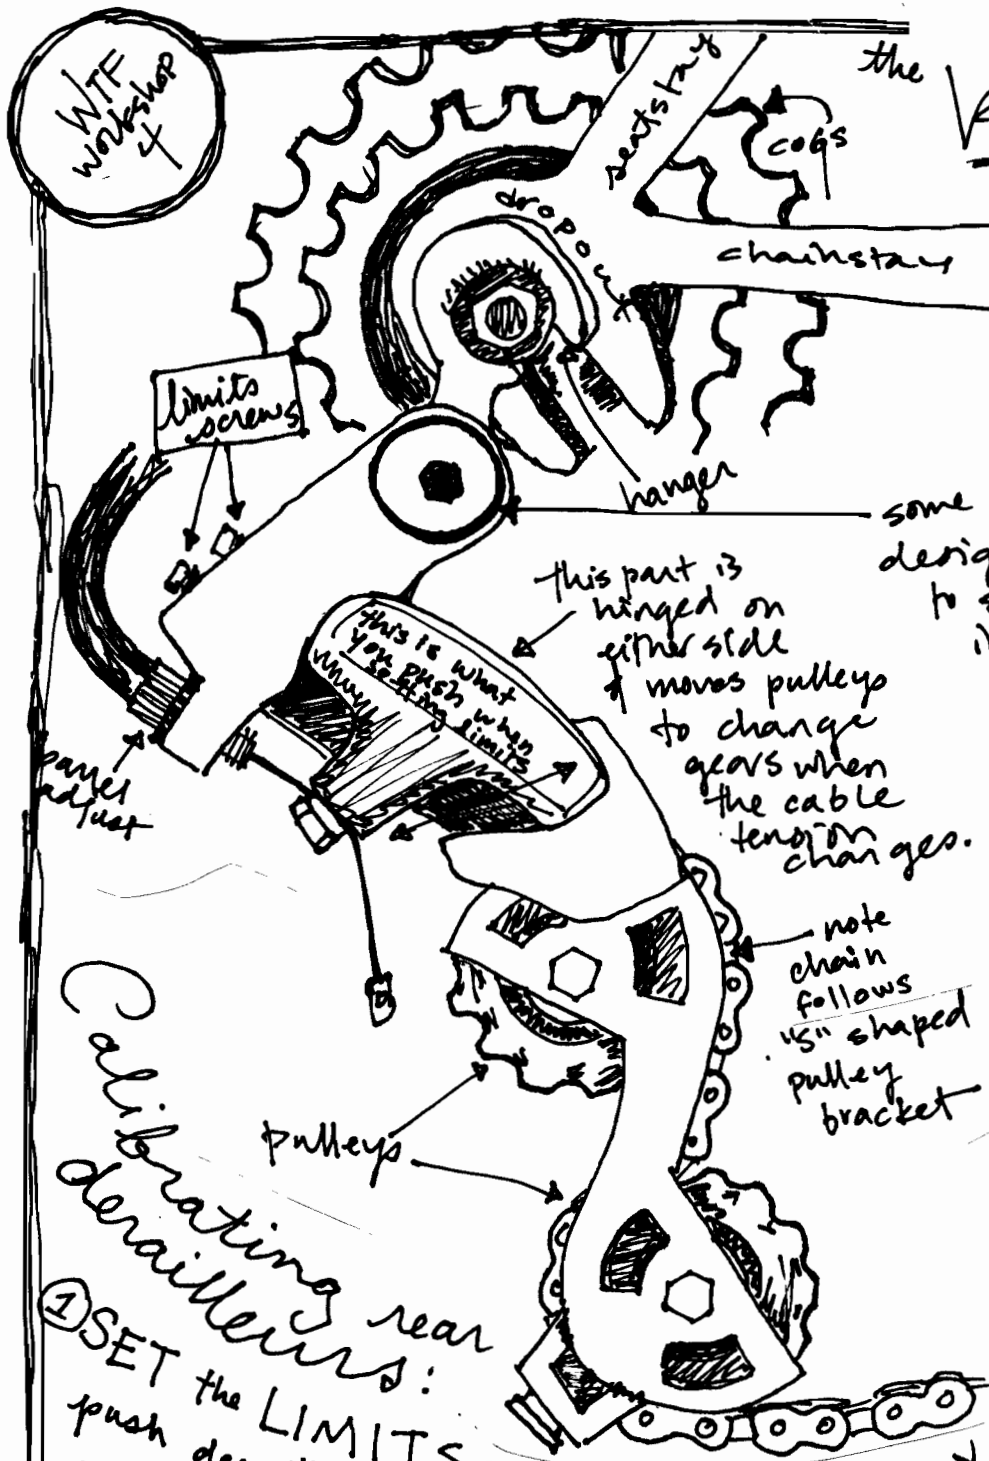 WTF
workshop
4
the
seatstay
cogs
dropout
chainstay
limits
screws
hanger
some
this part is
hinged on
either side
& moves pulleys
to change
gears when
the cable
tension
changes.
this is what
you push when
setting limits
adjust
note
chain
follows
"S" shaped
pulley
bracket
pulleys
Calibrating rear
derailleurs:
① SET the LIMITS
push